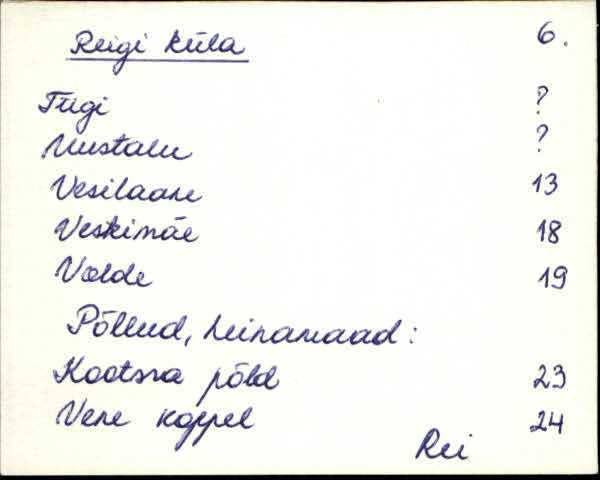 Reigi küla 6.
Tiigi ?
Uustalu ?
Vesilaane 13
Veskimäe 18
Välde 19
Põllud, heinamaad:
Kootsra põld 23
Vene koppel 24
Rei